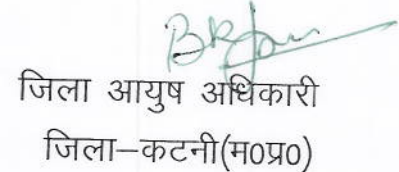 जिला आयुष अधिकारी
जिला–कटनी(म0प्र0)